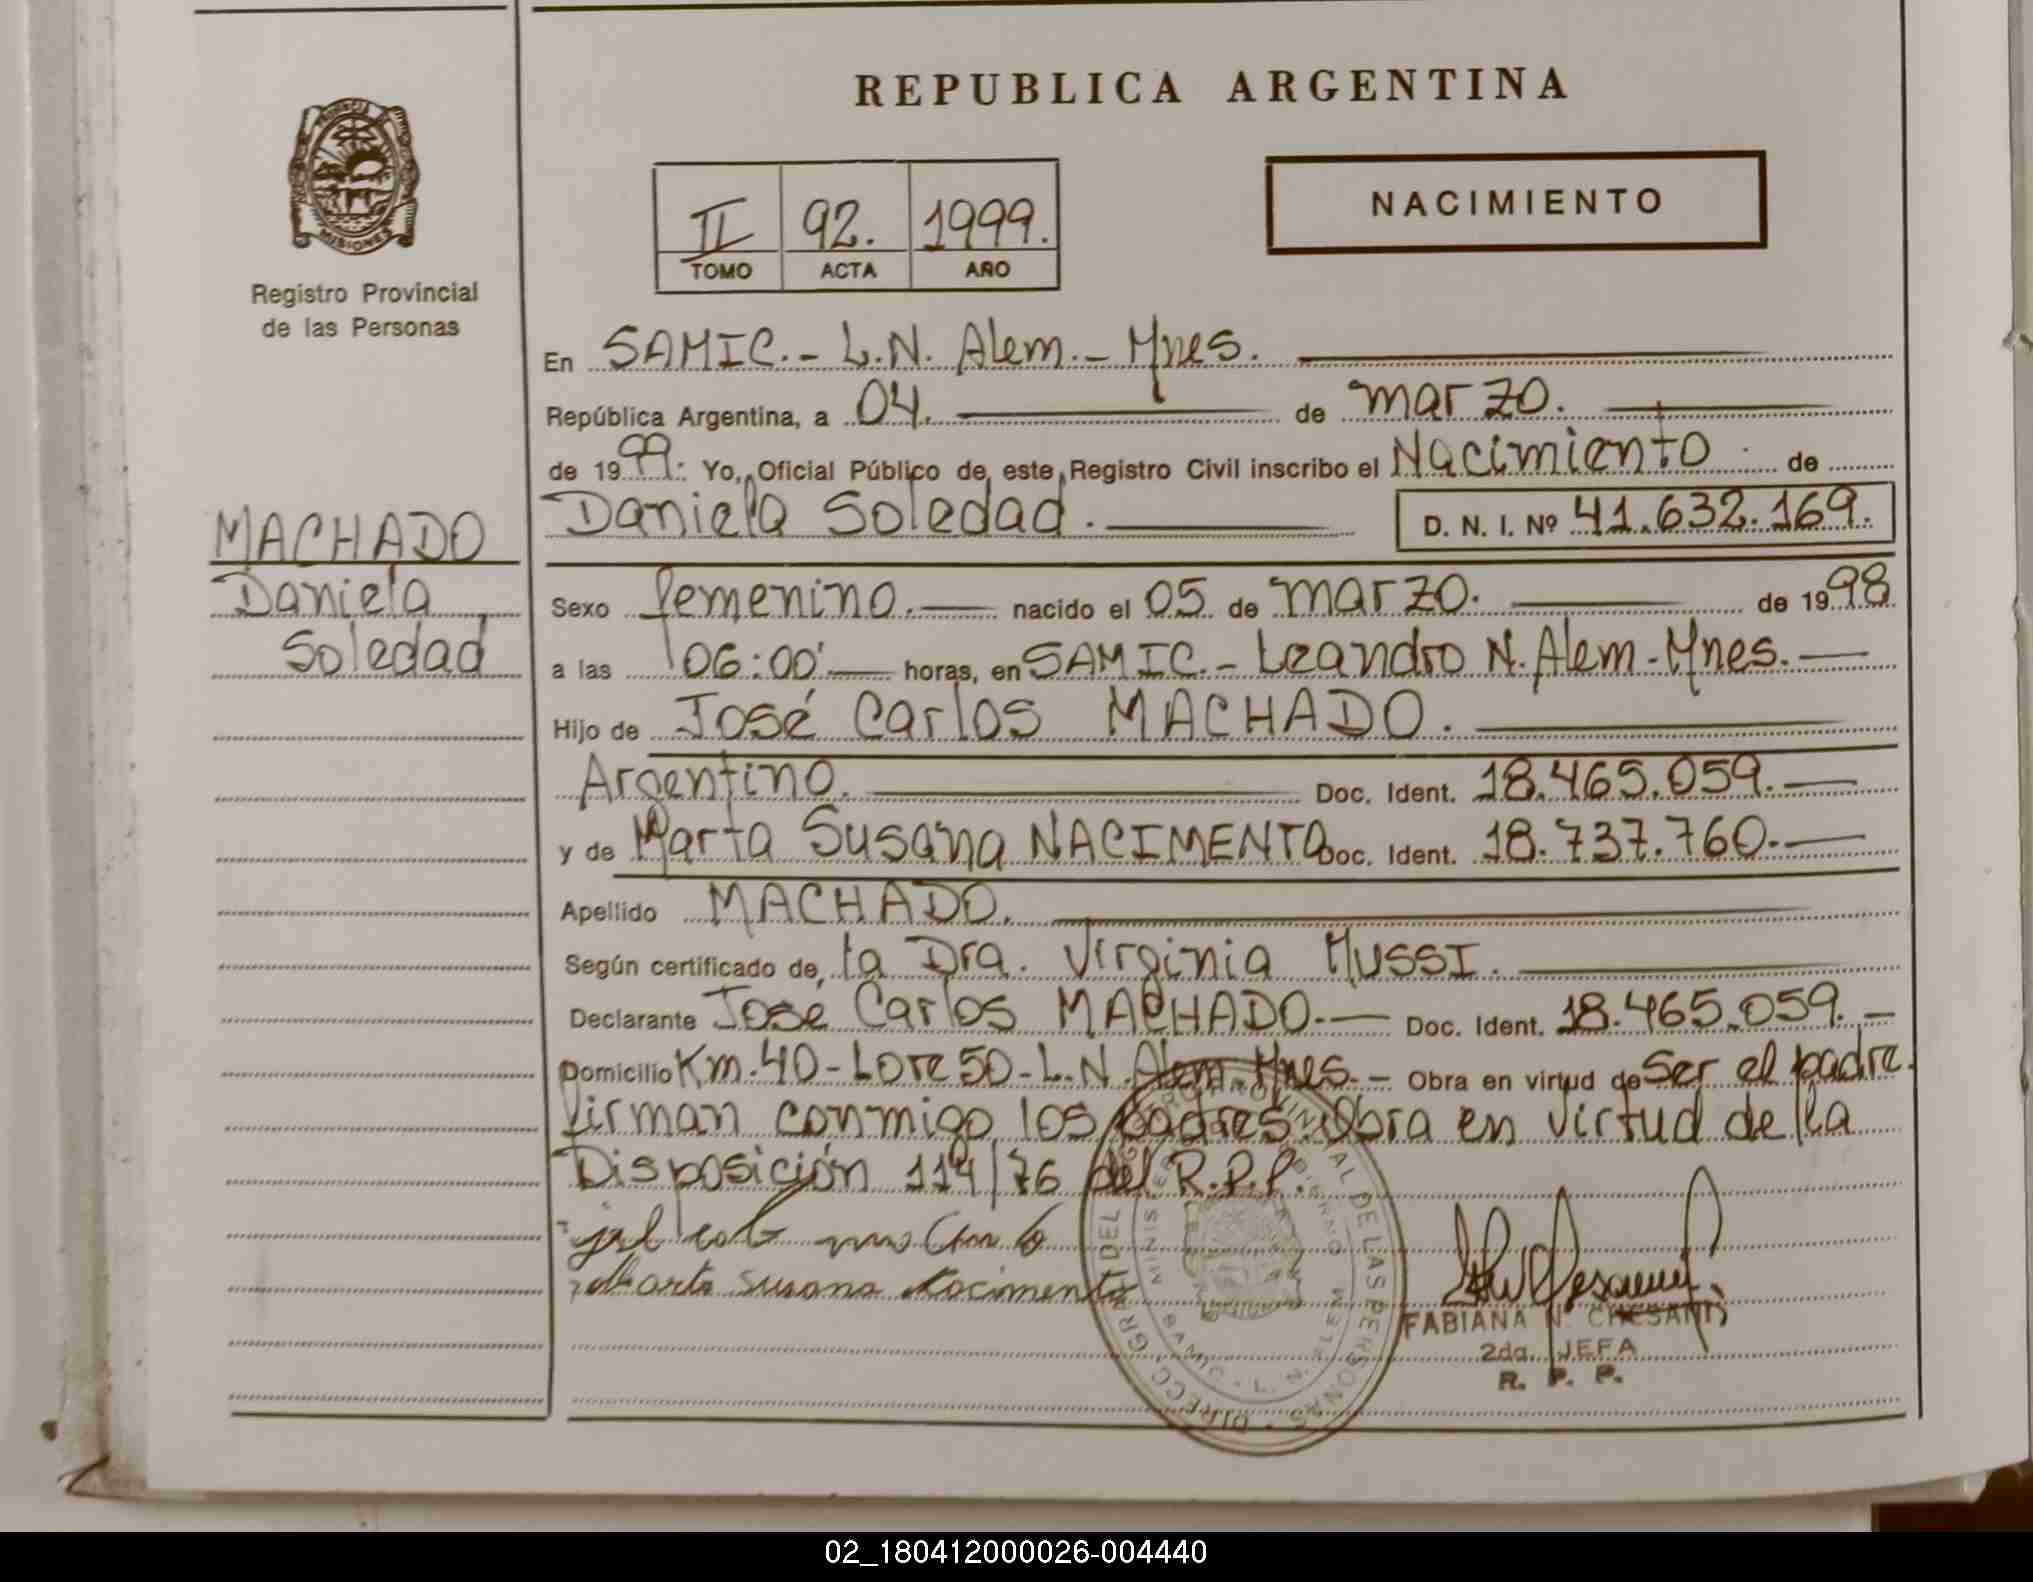 REPUBLICA ARGENTINA
PROVINCIA DE
MISIONES
Registro Provincial
de las Personas
II 92. 1999.
TOMO ACTA AÑO
NACIMIENTO
En SAMIC.- L.N. Alem.- Mnes.
República Argentina, a 04. de marzo.
de 1999: Yo, Oficial Público de este Registro Civil inscribo el Nacimiento de
Daniela Soledad. D. N. I. Nº 41.632.169.
MACHADO
Daniela
Soledad
Sexo femenino. nacido el 05 de marzo. de 1998
a las 06:00' horas, en SAMIC.- Leandro N. Alem-Mnes.
Hijo de José Carlos MACHADO.
Argentino. Doc. Ident. 18.465.059.
y de Marta Susana NACIMENTO Doc. Ident. 18.737.760.
Apellido MACHADO.
Según certificado de, la Dra. Virginia MUSSI.
Declarante Jose Carlos MACHADO. Doc. Ident. 18.465.059.
Domicilio Km.40-Lote 50-L.N.Alem Mnes.- Obra en virtud de Ser el padre.
firman conmigo los padres. Obra en virtud de la
Disposición 114/76 del R.P.P.
Marta Susana Nacimento
DIRECC. GRAL. DEL REGISTRO PROVINCIAL DE LAS PERSONAS
L. N. ALEM
FABIANA N. CHESANI
2da. JEFA
R. P. P.
02_180412000026-004440